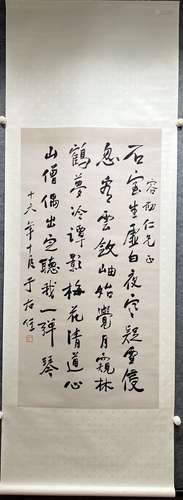 仁兄正
石室生虛白夜寒疑雪侵
忽看雲斂岫始覺月窺林
鶴夢冷潭影梅花清道心
山僧偶出定聽我一彈琴
十六年十月于右任